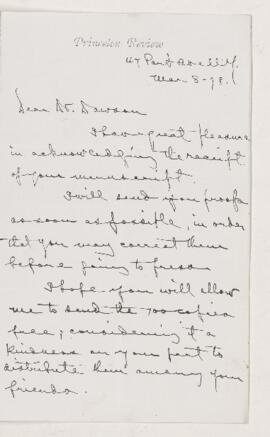 Princeton Review
47 Park Ave N.Y.
Mar. 5 - 78.
Dear Dr. Dawson
I have great pleasure
in acknowledging the receipt
of your manuscript.
I will send you proofs
as soon as possible, in order
that you may correct them
before going to press.
I hope you will allow
me to send the 700 copies
free; considering it a
kindness on your part to
distribute them among your
friends.